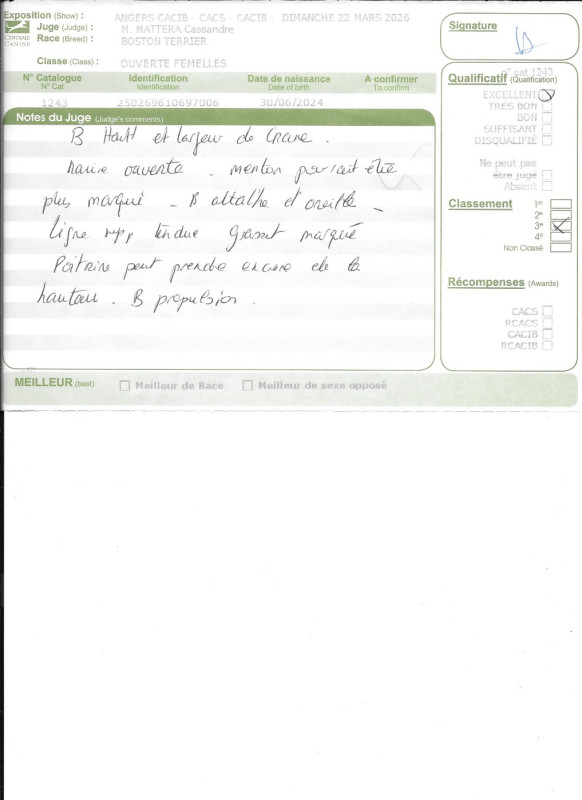 Exposition (Show) : ANGERS CACIB - CACS - CACIB - DIMANCHE 22 MARS 2026
Juge (Judge) : M. MATTERA Cassandre
Race (Breed) : BOSTON TERRIER
CENTRALE
CANINE
Classe (Class) : OUVERTE FEMELLES
N° Catalogue Identification Date de naissance A confirmer
N° Cat Identification Date of birth To confirm
1243 250269610697006 30/06/2024
Notes du Juge (Judge's comments)
B Haut et largeur de Crane.
Narine ouverte. menton pourrait être
plus marqué - B attache d'oreille -
ligne sup tendue grasset marqué
Poitrine peut prendre encore de la
hauteur. B propulsion.
Signature
n° cat 1243
Qualificatif (Qualification)
EXCELLENT
TRES BON
BON
SUFFISANT
DISQUALIFIÉ
Ne peut pas
être jugé
Absent
Classement 1er
2e
3e
4e
Non Classé
Récompenses (Awards)
CACS
RCACS
CACIB
RCACIB
MEILLEUR (best) Meilleur de Race Meilleur de sexe opposé